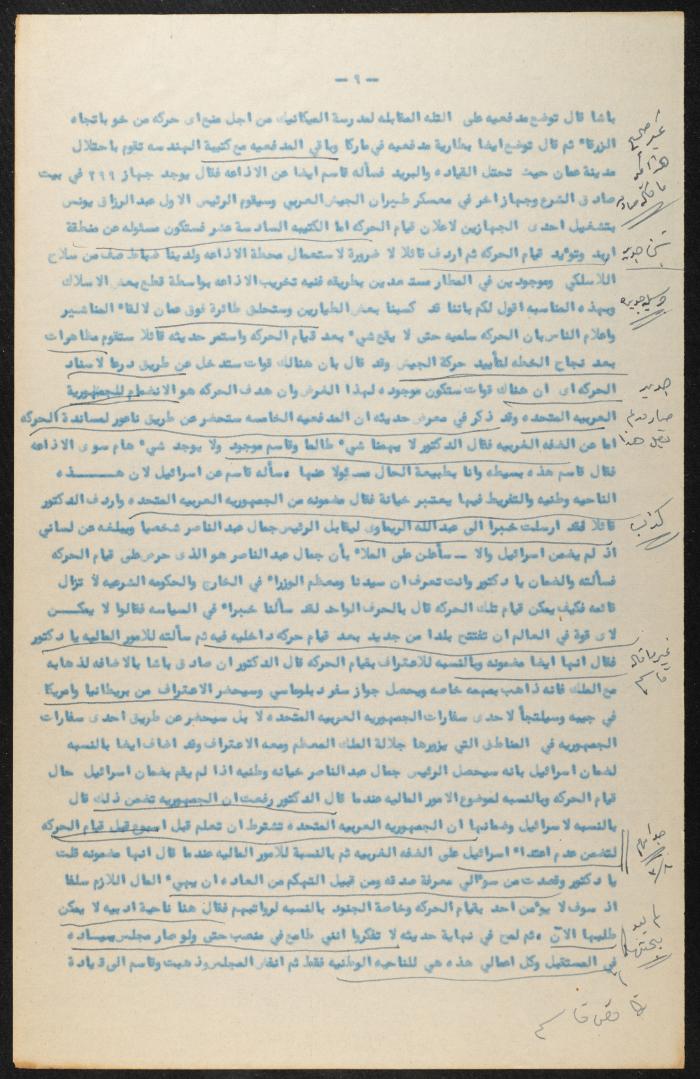 — ٩ —
باشا قال توضع مدفعيه على التله المقابله لمدرسة الميكانيك من اجل منع اى حركه من خو باتجاه
الزرقاء ثم قال توضع ايضا بطارية مدفعيه في ماركا وباقي المدفعيه مع كتيبة الهندسه تقوم باحتلال
مدينة عمان حيث تحتل القياده والبريد فسأله قاسم ايضا عن الاذاعه فقال يوجد جهاز ٢٩٩ في بيت
صادق الشرع وجهاز اخر في معسكر طيران الجيش العربي وسيقوم الرئيس الاول عبد الرزاق يونس
بتشغيل احدى الجهازين لاعلان قيام الحركه اما الكتيبه السادسة عشر فستكون مسئوله عن منطقة
اربد وتؤيد قيام الحركه ثم اردف قائلا لا ضرورة لاستعمال محطة الاذاعه ولدينا ضباط صف من سلاح
اللاسلكي وموجودين في المطار مستعدين بطريقه فنيه تخريب الاذاعه بواسطة قطع بعض الاسلاك
وبهذه المناسبه اقول لكم باننا قد كسبنا بعض الطيارين وستحلق طائرة فوق عمان لالقاء المناشير
واعلام الناس بان الحركه سلميه حتى لا يقع شيء بعد قيام الحركه واستمر حديثه قائلا ستقوم مظاهرات
بعد نجاح الخطه لتأييد حركة الجيش وقد قال بان هنالك قوات ستدخل عن طريق درعا لاسناد
الحركه اى ان هناك قوات ستكون موجوده لهذا الغرض وان هدف الحركه هو الانضمام للجمهورية
العربيه المتحده وقد ذكر في معرض حديثه ان المدفعيه الخامسه ستحضر عن طريق ناعور لمساندة الحركه
اما عن الضفه الغربيه فقال الدكتور لا يهمنا شيء طالما وقاسم موجود ولا يوجد شيء هام سوى الاذاعه
فقال قاسم هذه بسيطه وانا بطبيعة الحال مسئولا عنها وسأله قاسم عن اسرائيل لان هـــذه
الناحيه وطنيه والتفريط فيها يعتبر خيانة فقال مضمونه من الجمهوريه العربيه المتحده واردف الدكتور
قائلا لقد ارسلت خبرا الى عبد الله الريماوى ليقابل الرئيس جمال عبد الناصر شخصيا ويبلغه عن لساني
اذ لم يضمن اسرائيل والا ــ سأعلن على الملاء بأن جمال عبد الناصر هو الذى حرص على قيام الحركه
فسألته والضمان يا دكتور وانت تعرف ان سيدنا ومعظم الوزراء في الخارج والحكومه الشرعيه لا تزال
قائمه فكيف يمكن قيام تلك الحركه قال بالحرف الواحد لقد سألنا خبراء في السياسه فقالوا لا يمكــن
لاى قوة في العالم ان تفتتح بلدا من جديد بعد قيام حركه داخليه فيه ثم سألته للامور الماليه يا دكتور
فقال انها ايضا مضمونه وبالنسبه للاعتراف بقيام الحركه قال الدكتور ان صادق باشا بالاضافه لذهابه
مع الملك فانه ذاهب بمهمه خاصه ويحمل جواز سفر دبلوماسي وسيحضر الاعتراف من بريطانيا وامريكا
في جيبه وسيلتجأ لاحدى سفارات الجمهوريه العربيه المتحده لا بل سيحضر عن طريق احدى سفارات
الجمهوريه في المناطق التي يزورها جلالة الملك المعظم ومعه الاعتراف وقد اضاف ايضا بالنسبه
لضمان اسرائيل بانه سيحمل الرئيس جمال عبد الناصر خيانه وطنيه اذا لم يقم بضمان اسرائيل حال
قيام الحركه وبالنسبه لموضوع الامور الماليه عندما قال الدكتور رفعت ان الجمهوريه تضمن ذلك قال
بالنسبه لاسرائيل وضمانها ان الجمهوريه العربيه المتحده تشترط ان تعلم قبل اسبوع قبل قيام الحركه
لتضمن عدم اعتداء اسرائيل على الضفه الغربيه ثم بالنسبة للامور الماليه عندما قال انها مضمونه قلت
يا دكتور وقصدت من سؤالي معرفة صدقه ومن قبيل التهكم من العاده ان يهيء المال اللازم سلفا
اذ سوف لا يؤمن احد بقيام الحركه وخاصة الجنود بالنسبه لرواتبهم فقال هنا ناحية ادبيه لا يمكن
طلبها الآن وثم لمح في نهاية حديثه لا تفكروا انني طامع في منصب حتى ولو صار مجلس سياده
في المستقبل وكل اعمالي هذه هي للناحيه الوطنيه فقط ثم انفار المجلس وذهبت وقاسم الى قيادة
غير صحيح
هذا
كذاب
غير ما قاله
قاسم